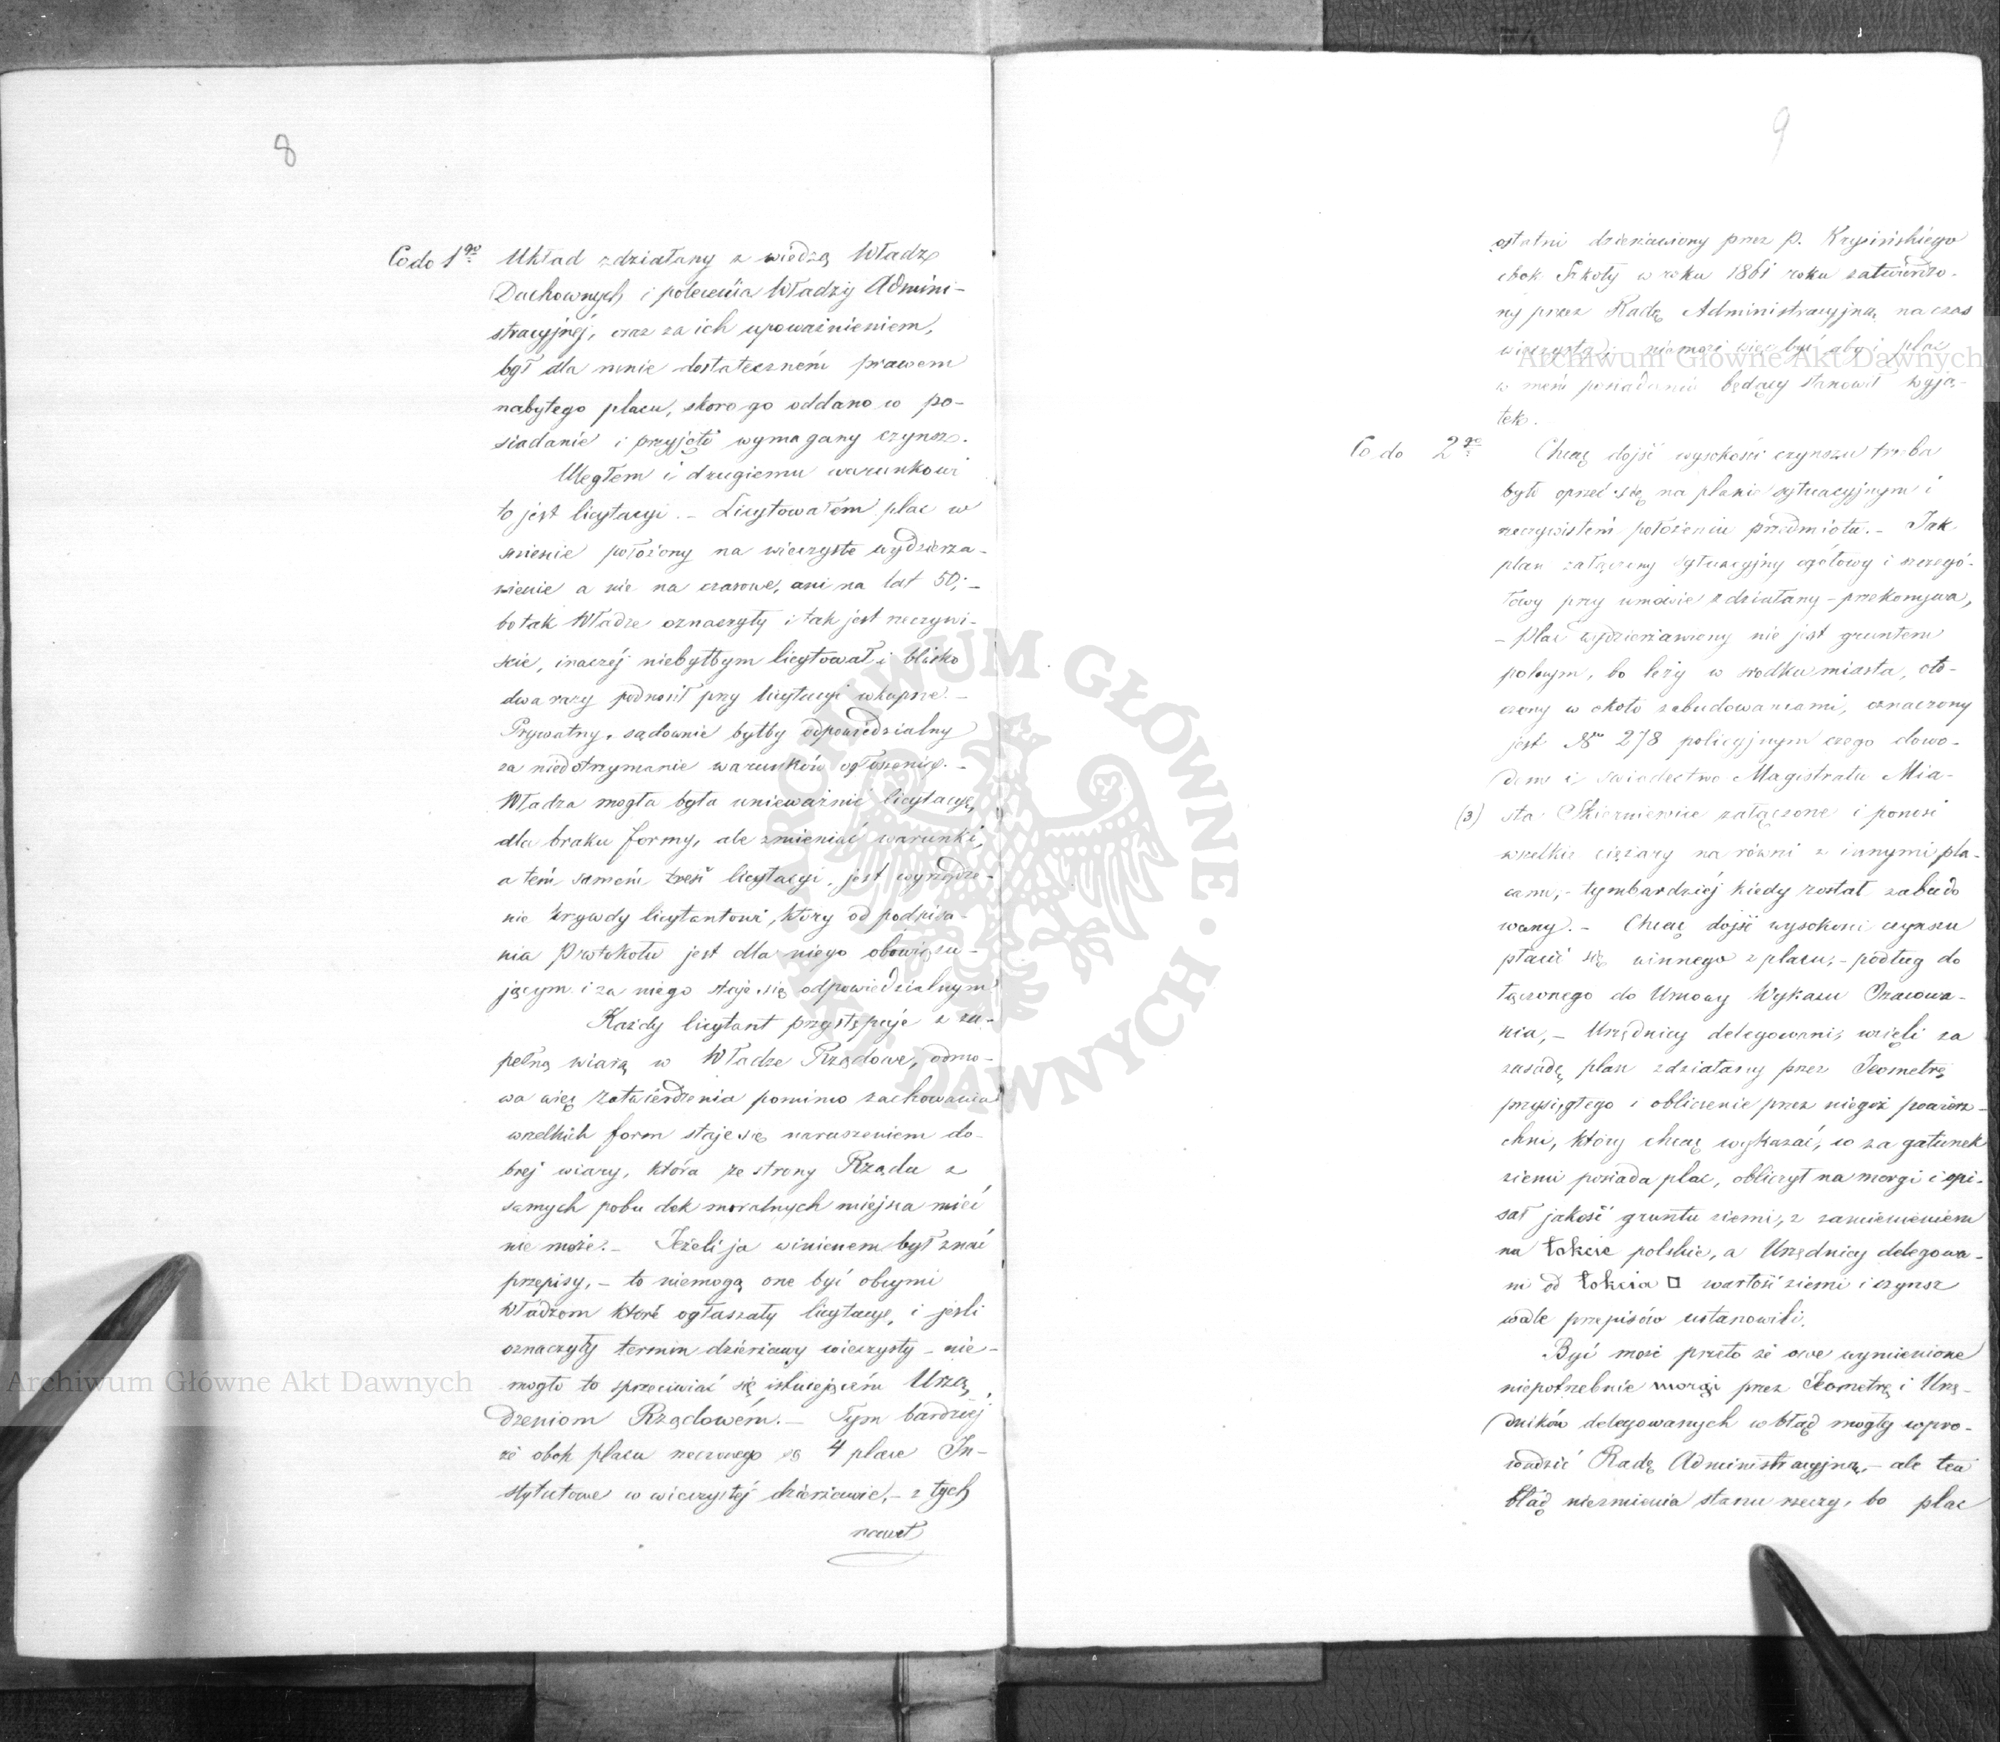 8
Co do 1go Układ zdziałany z wiedzą Władz
Duchownych i polecenia Władzy Admini-
stracyjnej, oraz za ich upoważnieniem,
był dla mnie dostatecznem prawem
nabytego placu, skoro go oddano w po-
siadanie i przyjęto wymagany czynsz.
Uległem i drugiemu warunkowi
to jest licytacyi. – Licytowałem plac w
mieście położony na wieczyste wydzierża-
wienie a nie na czasowe, ani na lat 50; –
bo tak Władze oznaczyły i tak jest rzeczywi-
ście, inaczéj niebyłbym licytował i blisko
dwa razy podnosił przy licytacyi wkupne. –
Prywatny, sądownie byłby odpowiedzialny
za niedotrzymanie warunków ogłoszenia. –
Władza mogła była unieważnić licytacyę,
dla braku formy, ale zmieniać warunki,
a tém samém treść licytacyi, jest wyrządze-
nie krzywdy licytantowi, który od podpisa-
nia Protokołu jest dla niego obowiązu-
jącym i za niego staje się odpowiedzialnym
Każdy licytant przystępuje z zu-
pełną wiarą w Władze Rządowe, odmo-
wa więc zatwierdzenia pomimo zachowania
wszelkich form staje się naruszeniem do-
brej wiary, która ze strony Rządu z
samych pobudek moralnych miejsca mieć
nie może. – Jeżeli ja winienem był znać
przepisy, – to niemogą one być obcymi
Władzom które ogłaszały licytacye, i jeśli
oznaczyły termin dzierżawy wieczysty – nie-
mogło to sprzeciwiać się istniejącém Urzą-
dzeniom Rządowém. – Tym bardziéj
że obok placu rzeczonego są 4 place In-
stytutowe w wieczystéj dzierżawie, – z tych
nawet
9
ostatni dzierżawiony przez p. Krysińskiego
obok Szkoły w roku 1861 roku zatwierdzo-
ny przez Radę Administracyjną na czas
wieczysty; niemoże więc być aby i plac
w mem posiadaniu będący stanowił wyją-
tek.
Co do 2go Chcąc dojść wysokości czynszu trzeba
było oprzeć się na planie sytuacyjnym i
rzeczywistem położeniu przedmiotu. – Jak
plan załączony sytuacyjny ogółowy i szczegó-
łowy przy umowie zdziałany – przekonywa,
– plac wydzierżawiony nie jest gruntem
polowym, bo leży w środku miasta, oto-
czony w około zabudowaniami, oznaczony
jest No 278 policyjnym czego dowo-
dem i świadectwo Magistratu Mia-
(3) sta Skierniewice załączone i ponosi
wszelkie ciężary na równi z innymi pla-
cami, – tymbardziéj kiedy został zabudo
wany. – Chcąc dojść wysokości czynszu
płacić się winnego z placu, – podług do
łączonego do Umowy Wykazu Szacowa-
nia, – Urzędnicy delegowani, wzięli za
zasadę plan zdziałany przez Jeometrę
przysięgłego i obliczenie przez niegoż powierz-
chni, który chcąc wykazać, co za gatunek
ziemi posiada plac, obliczył na morgi i opi-
sał jakość gruntu ziemi, z zamienieniem
na łokcie polskie, a Urzędnicy delegowa-
ni od łokcia □ wartość ziemi i czynsz
wedle przepisów ustanowili.
Być może przeto że owe wymienione
niepotrzebnie morgi przez Jeometrę i Urzę-
dników delegowanych w błąd mogły wpro-
wadzić Radę Administracyjną, – ale ten
błąd niezmienia stanu rzeczy, bo plac
Archiwum Główne Akt Dawnych
Archiwum Główne Akt Dawnych
ARCHIWUM GŁÓWNE AKT DAWNYCH